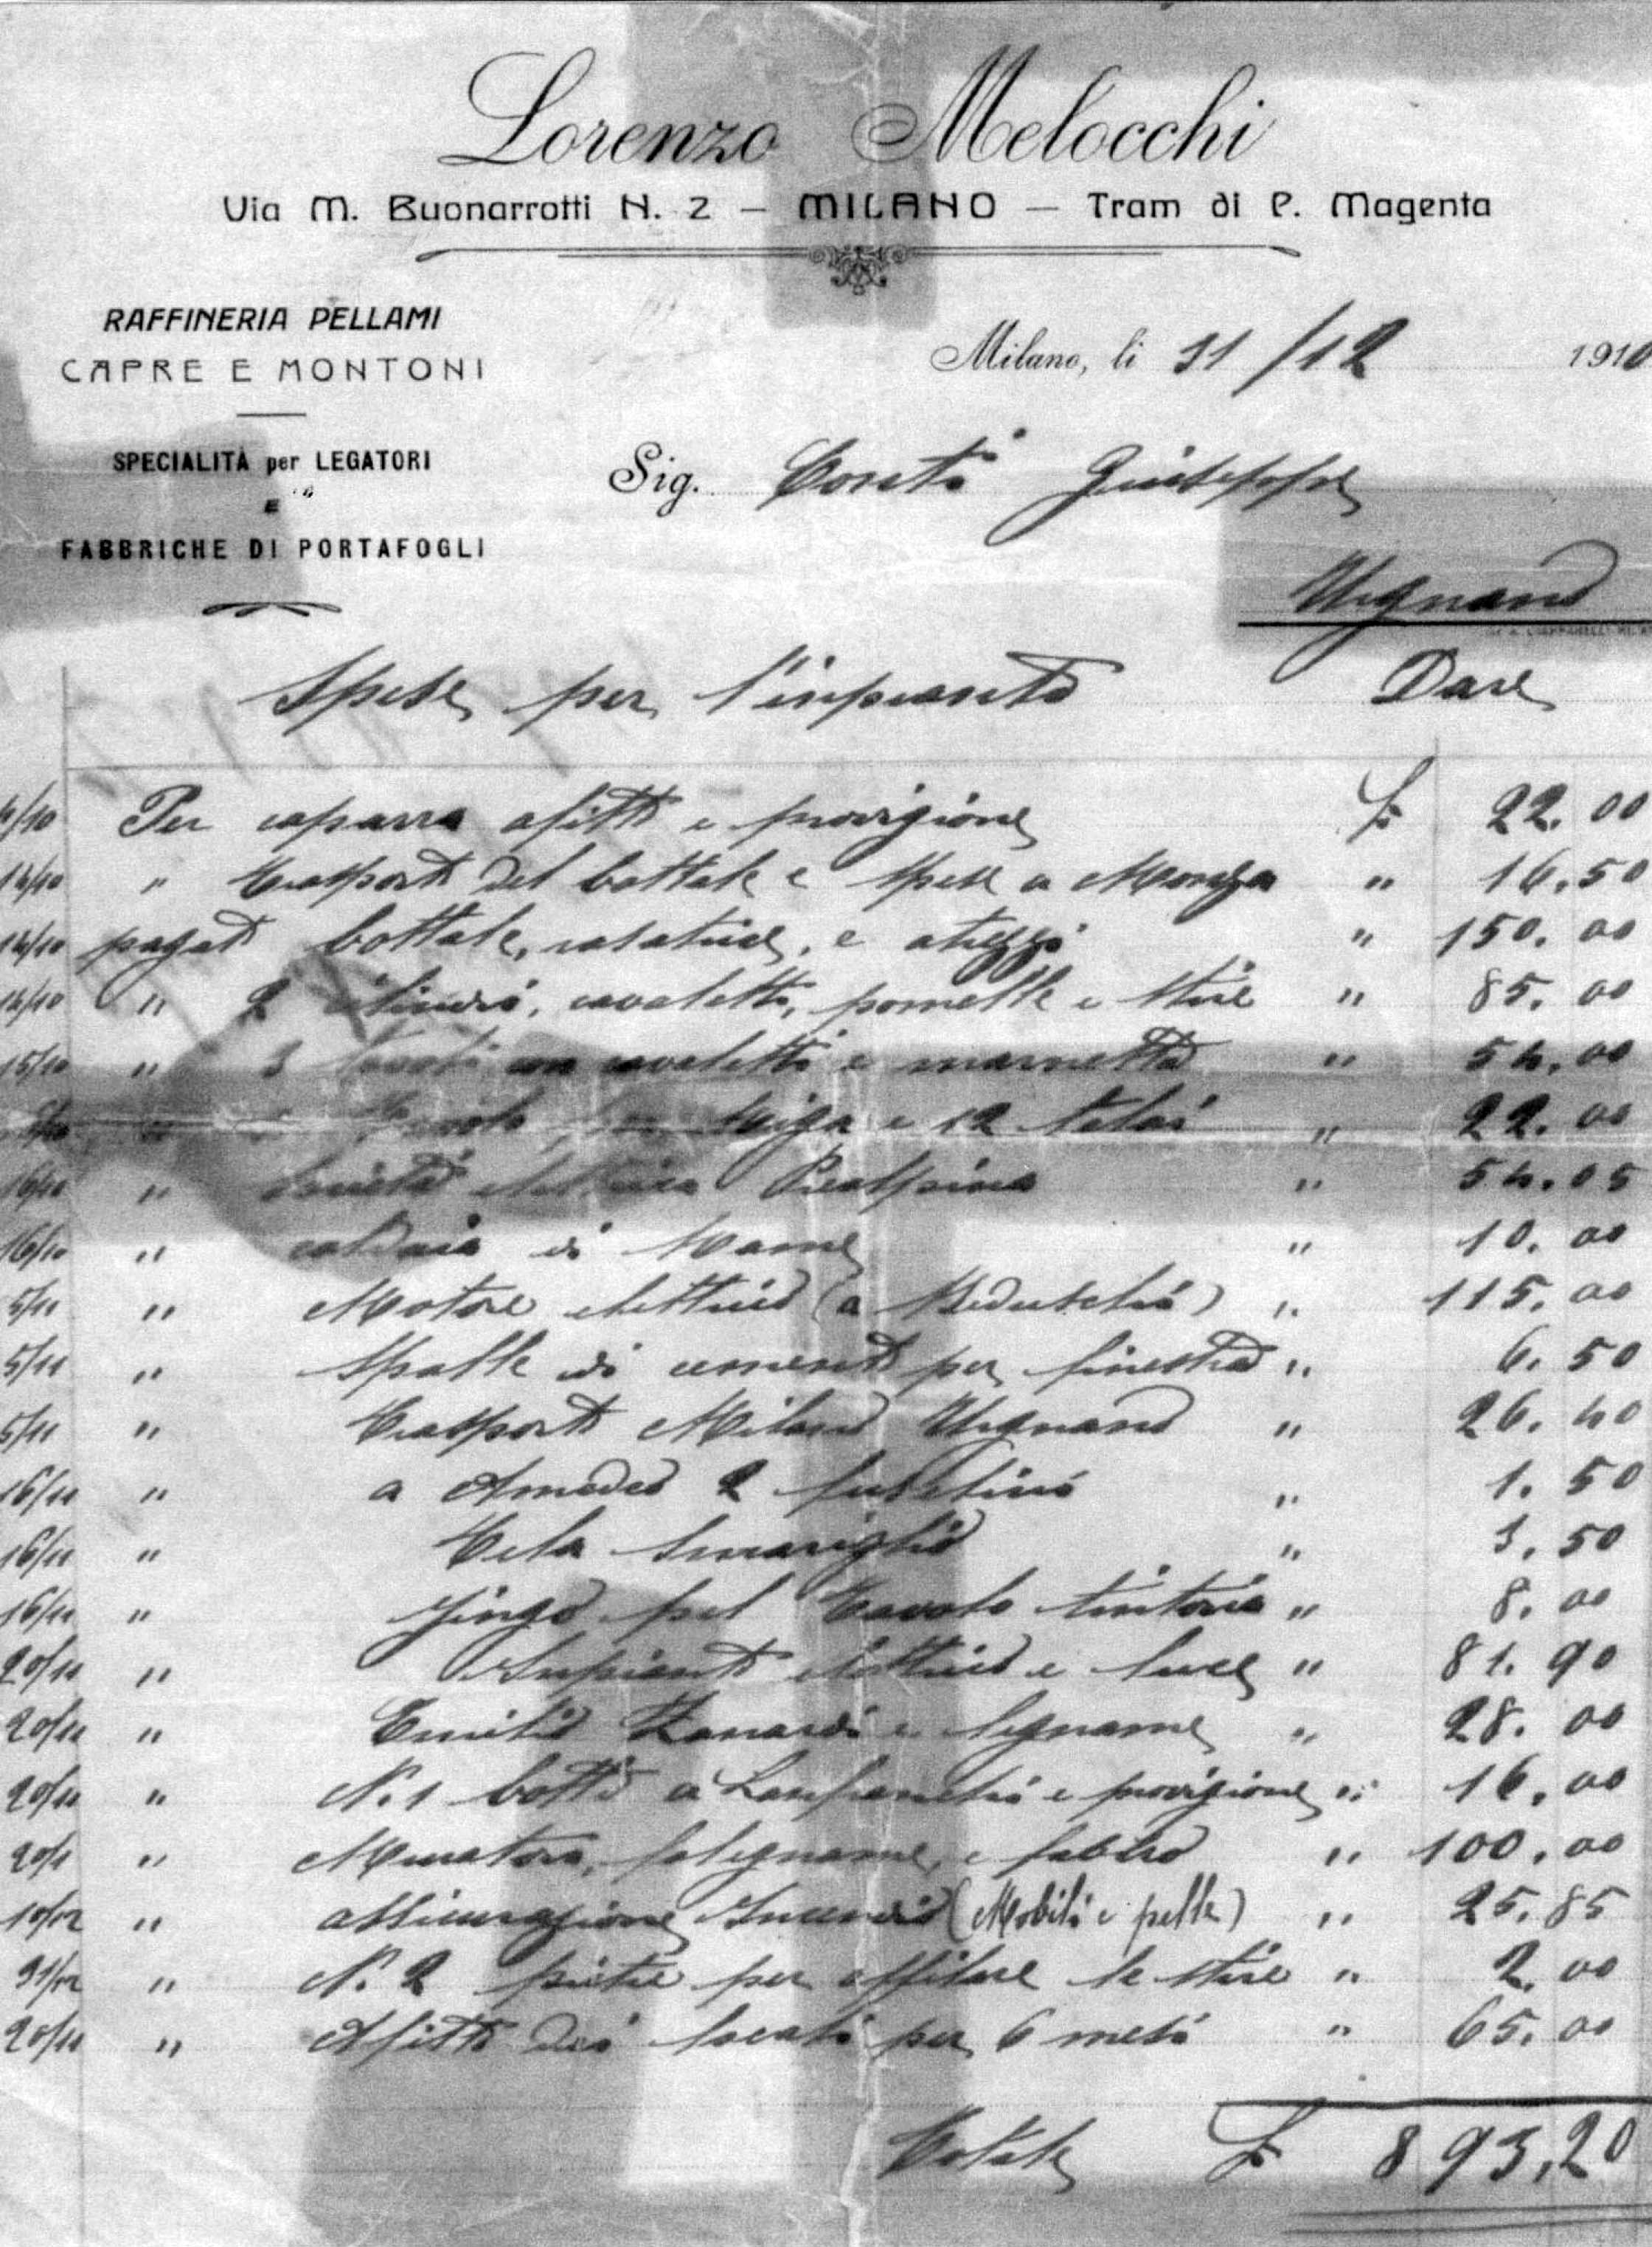 Lorenzo Melocchi
Via M. Buonarrotti N. 2 — MILANO — Tram di P. Magenta
RAFFINERIA PELLAMI
CAPRE E MONTONI
Milano, li 31/12 1910
SPECIALITÀ per LEGATORI
E
FABBRICHE DI PORTAFOGLI
Sig. Conti Giuseppe
Urgnano
Spese per l'inpianto Dare
Per caparra afitto e provigione £ 22.00
14/10 " Trasporto del bottale e spese a Monza " 16.50
14/10 pagato bottale, rasatrice, e atrezzi " 150.00
14/10 " 2 cilindri, cavaletti, pomelle e stire " 85.00
15/10 " 3 tavoli con cavaletti e marmetta " 54.00
" Tavolo e 12 telai " 22.00
16/10 " Società elettrica Prealpina " 54.05
16/10 " caldaia di Rame " 10.00
5/11 " Motore elettrico (a Beduschi) " 115.00
5/11 " Spalle di cemento per finestra " 6.50
5/11 " Trasporto Milano Urgnano " 26.40
16/11 " a Amedeo 2 " 1.50
16/11 " Tela smeriglio " 3.50
16/11 " zingo pel tavolo tintoria " 8.00
20/11 " Inpianto elettrico e luce " 81.90
20/11 " Emilio Zanardi e legname " 28.00
20/11 " N. 1 botte a e provigione " 16.00
20/11 " Muratore, falegname, e fabbro " 100.00
10/12 " assicurazione Incendio (Mobili e pelle) " 25.85
31/12 " N. 2 pietre per affilare le stire " 2.00
20/11 " Afitto dei locali per 6 mesi " 65.00
Totale £ 893,20